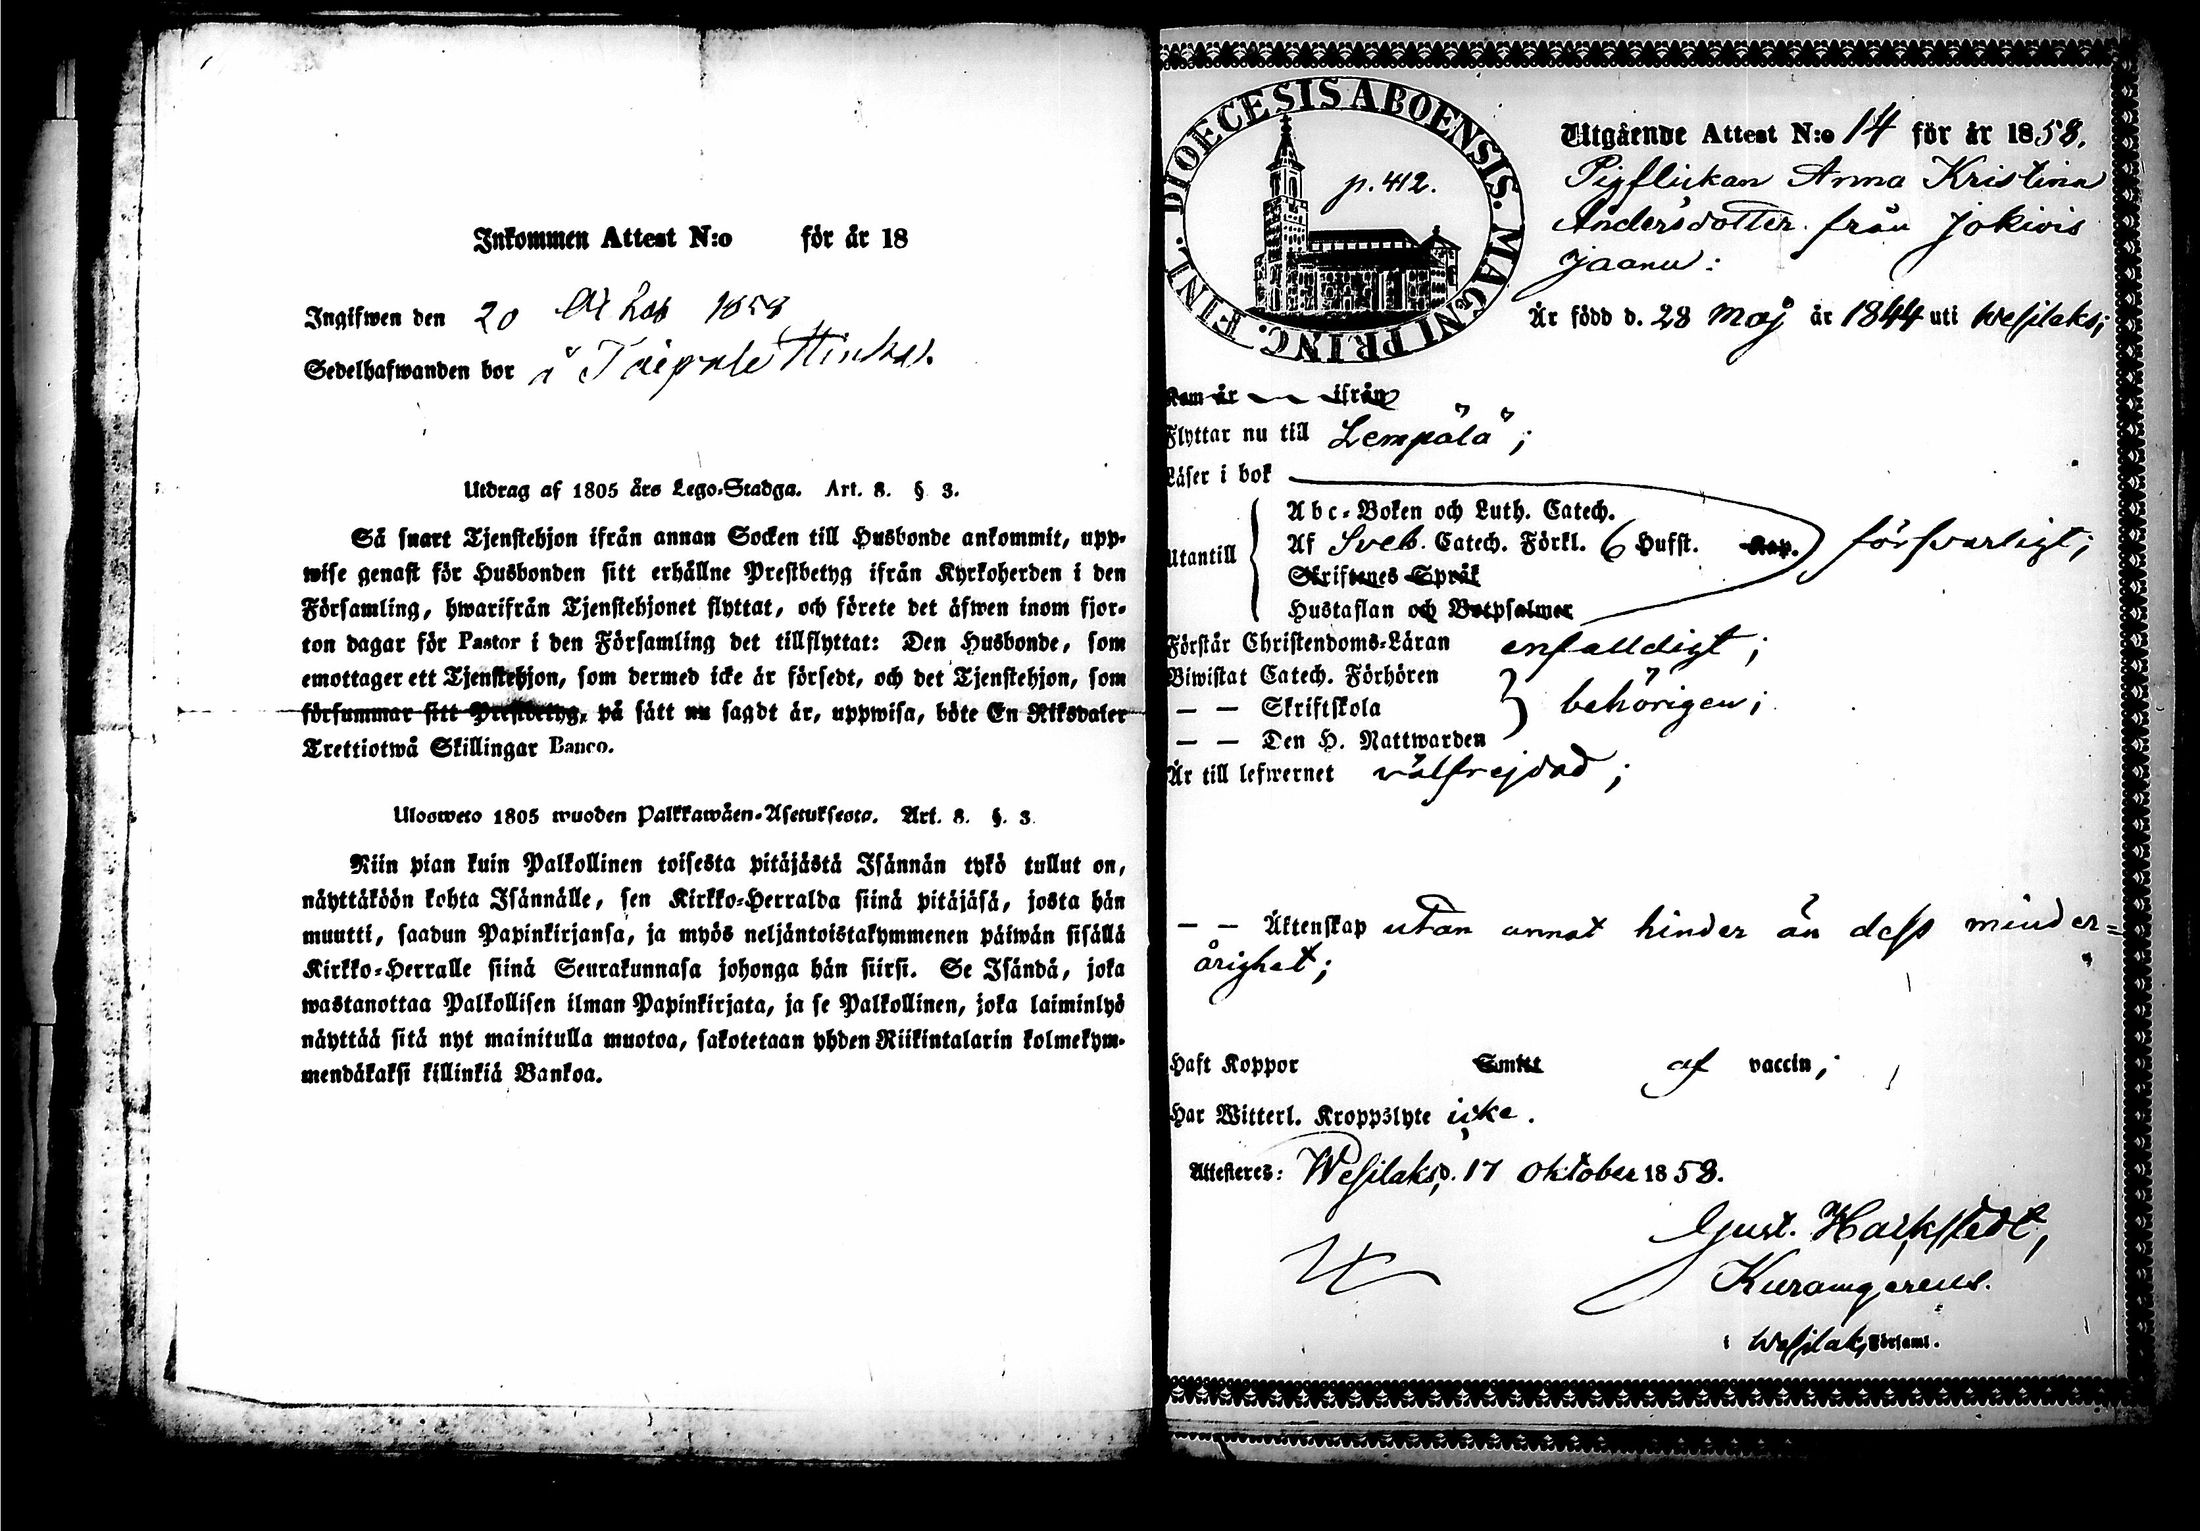 Inkommen Attest N:o för år 18
Ingifwen den 20 1858
Sedelhafwanden bor å Taipale
Utdrag af 1805 års Lego-Stadga. Art. 8. § 3.
Så snart Tjenstehjon ifrån annan Socken till Husbonde ankommit, upp-
wise genast för Husbonden sitt erhållne Prestbetyg ifrån Kyrkoherden i den
Församling, hwarifrån Tjenstehjonet flyttat, och förete det äfwen inom fjor-
ton dagar för Pastor i den Församling det tillflyttat: Den Husbonde, som
emottager ett Tjenstehjon, som dermed icke är försedt, och det Tjenstehjon, som
försummar sitt Prestbetyg, på sätt nu sagdt är, uppwisa, böte En Riksdaler
Trettiotwå Skillingar Banco.
Ulosweto 1805 wuoden Palkkawäen-Asetuksesta. Art. 8. §. 3.
Niin pian kuin Palkollinen toisesta pitäjästä Isännän tykö tullut on,
näyttäköön kohta Isännälle, sen Kirkko-Herralda siinä pitäjäsä, josta hän
muutti, saadun Papinkirjansa, ja myös neljäntoistakymmenen päiwän sisällä
Kirkko-Herralle siinä Seurakunnasa johonga hän siirsi. Se Isändä, joka
wastanottaa Palkollisen ilman Papinkirjata, ja se Palkollinen, joka laiminlyö
näyttää sitä nyt mainitulla muotoa, sakotetaan yhden Riikintalarin kolmekym-
mendäkaksi killinkiä Bankoa.
DIOECESIS ABOENSIS. MAGNI PRINC. FINL.
p. 412.
Utgående Attest N:o 14 för år 1858.
Pigflickan Anna Kristina
Andersdotter från Jokiois
Jaanu:
Är född d. 28 Maj år 1844 uti Wesilaks;
Kom år ifrån
Flyttar nu till Lempälä;
Läser i bok
Utantill
Abc-Boken och Luth. Catech.
Af Sveb. Catech. Förkl. 6 Hufst. Kap. försvarligt;
Skriftenes Språk
Hustaflan och Botpsalmer
Förstår Christendoms-Läran enfalldigt;
Biwistat Catech. Förhören
— — Skriftskola behörigen;
— — Den H. Nattwarden
Är till lefwernet välfrejdad;
— — Äktenskap utan annat hinder än dess minder=
årighet;
Haft Koppor Smitt af vaccin;
Har Witterl. Kroppslyte icke.
Attesteres: Wesilaks, d. 17 Oktober 1858.
Gust. Haikstedt,
Kuramgerens.
i Wesilaks Församl.